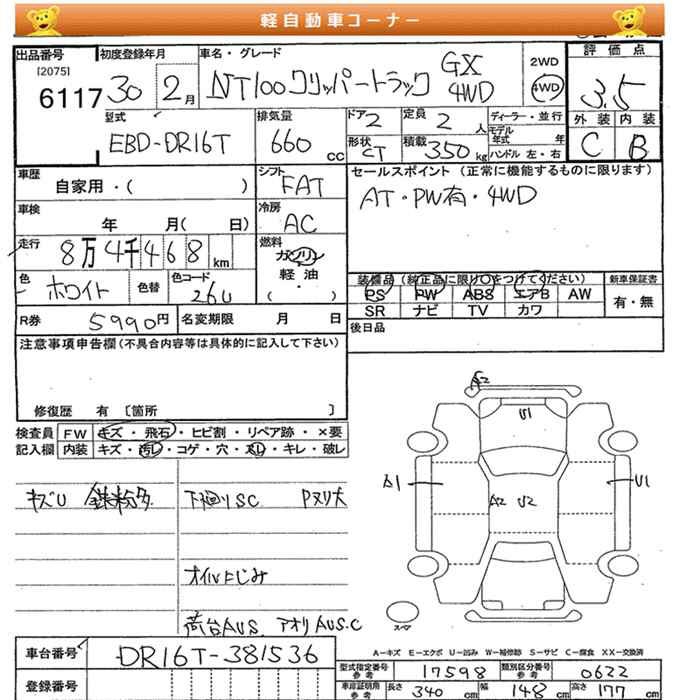 軽自動車コーナー
出品番号 初度登録年月 車名・グレード 2WD 評価点
[2075]
6117 30 2月 NT100クリッパートラック GX 4WD 4WD 3.5
型式 排気量 ドア 定員 ディーラー・並行 外装 内装
EBD-DR16T 660cc 2 2人 モデル年式 年 C B
形状 CT 積載 350kg ハンドル 左・右
車歴 シフト セールスポイント(正常に機能するものに限ります)
自家用・( ) FAT AT・PW有・4WD
車検 冷房
年 月( 日) AC
走行 燃料
8万4千468km ガソリン
軽油
( )
色 色替 色コード
ホワイト 26U
装備品(純正品に限り○をつけてください) 新車保証書
PS PW ABS エアB AW 有・無
SR ナビ TV カワ
R券 5990円 名変期限 月 日 後日品
注意事項申告欄(不具合内容等は具体的に記入して下さい)
修復歴 有 [箇所 ]
検査員 FW キズ・飛石・ヒビ割・リペア跡・×要
記入欄 内装 キズ・汚れ・コゲ・穴・スレ・キレ・破レ
A2
U1
A1 U1
A2 U2
キズU 鉄粉多 下廻りSC Pヌリ大
オイルにじみ
荷台AUS アオリAUS.C
スペア
A-キズ E-エクボ U-凹み W-補修跡 S-サビ C-腐食 XX-交換済
車台番号 DR16T-381536
登録番号
型式指定番号 参考 17598 類別区分番号 参考 0622
車庫証明用 参考 長さ 340cm 幅 148cm 高さ 177cm